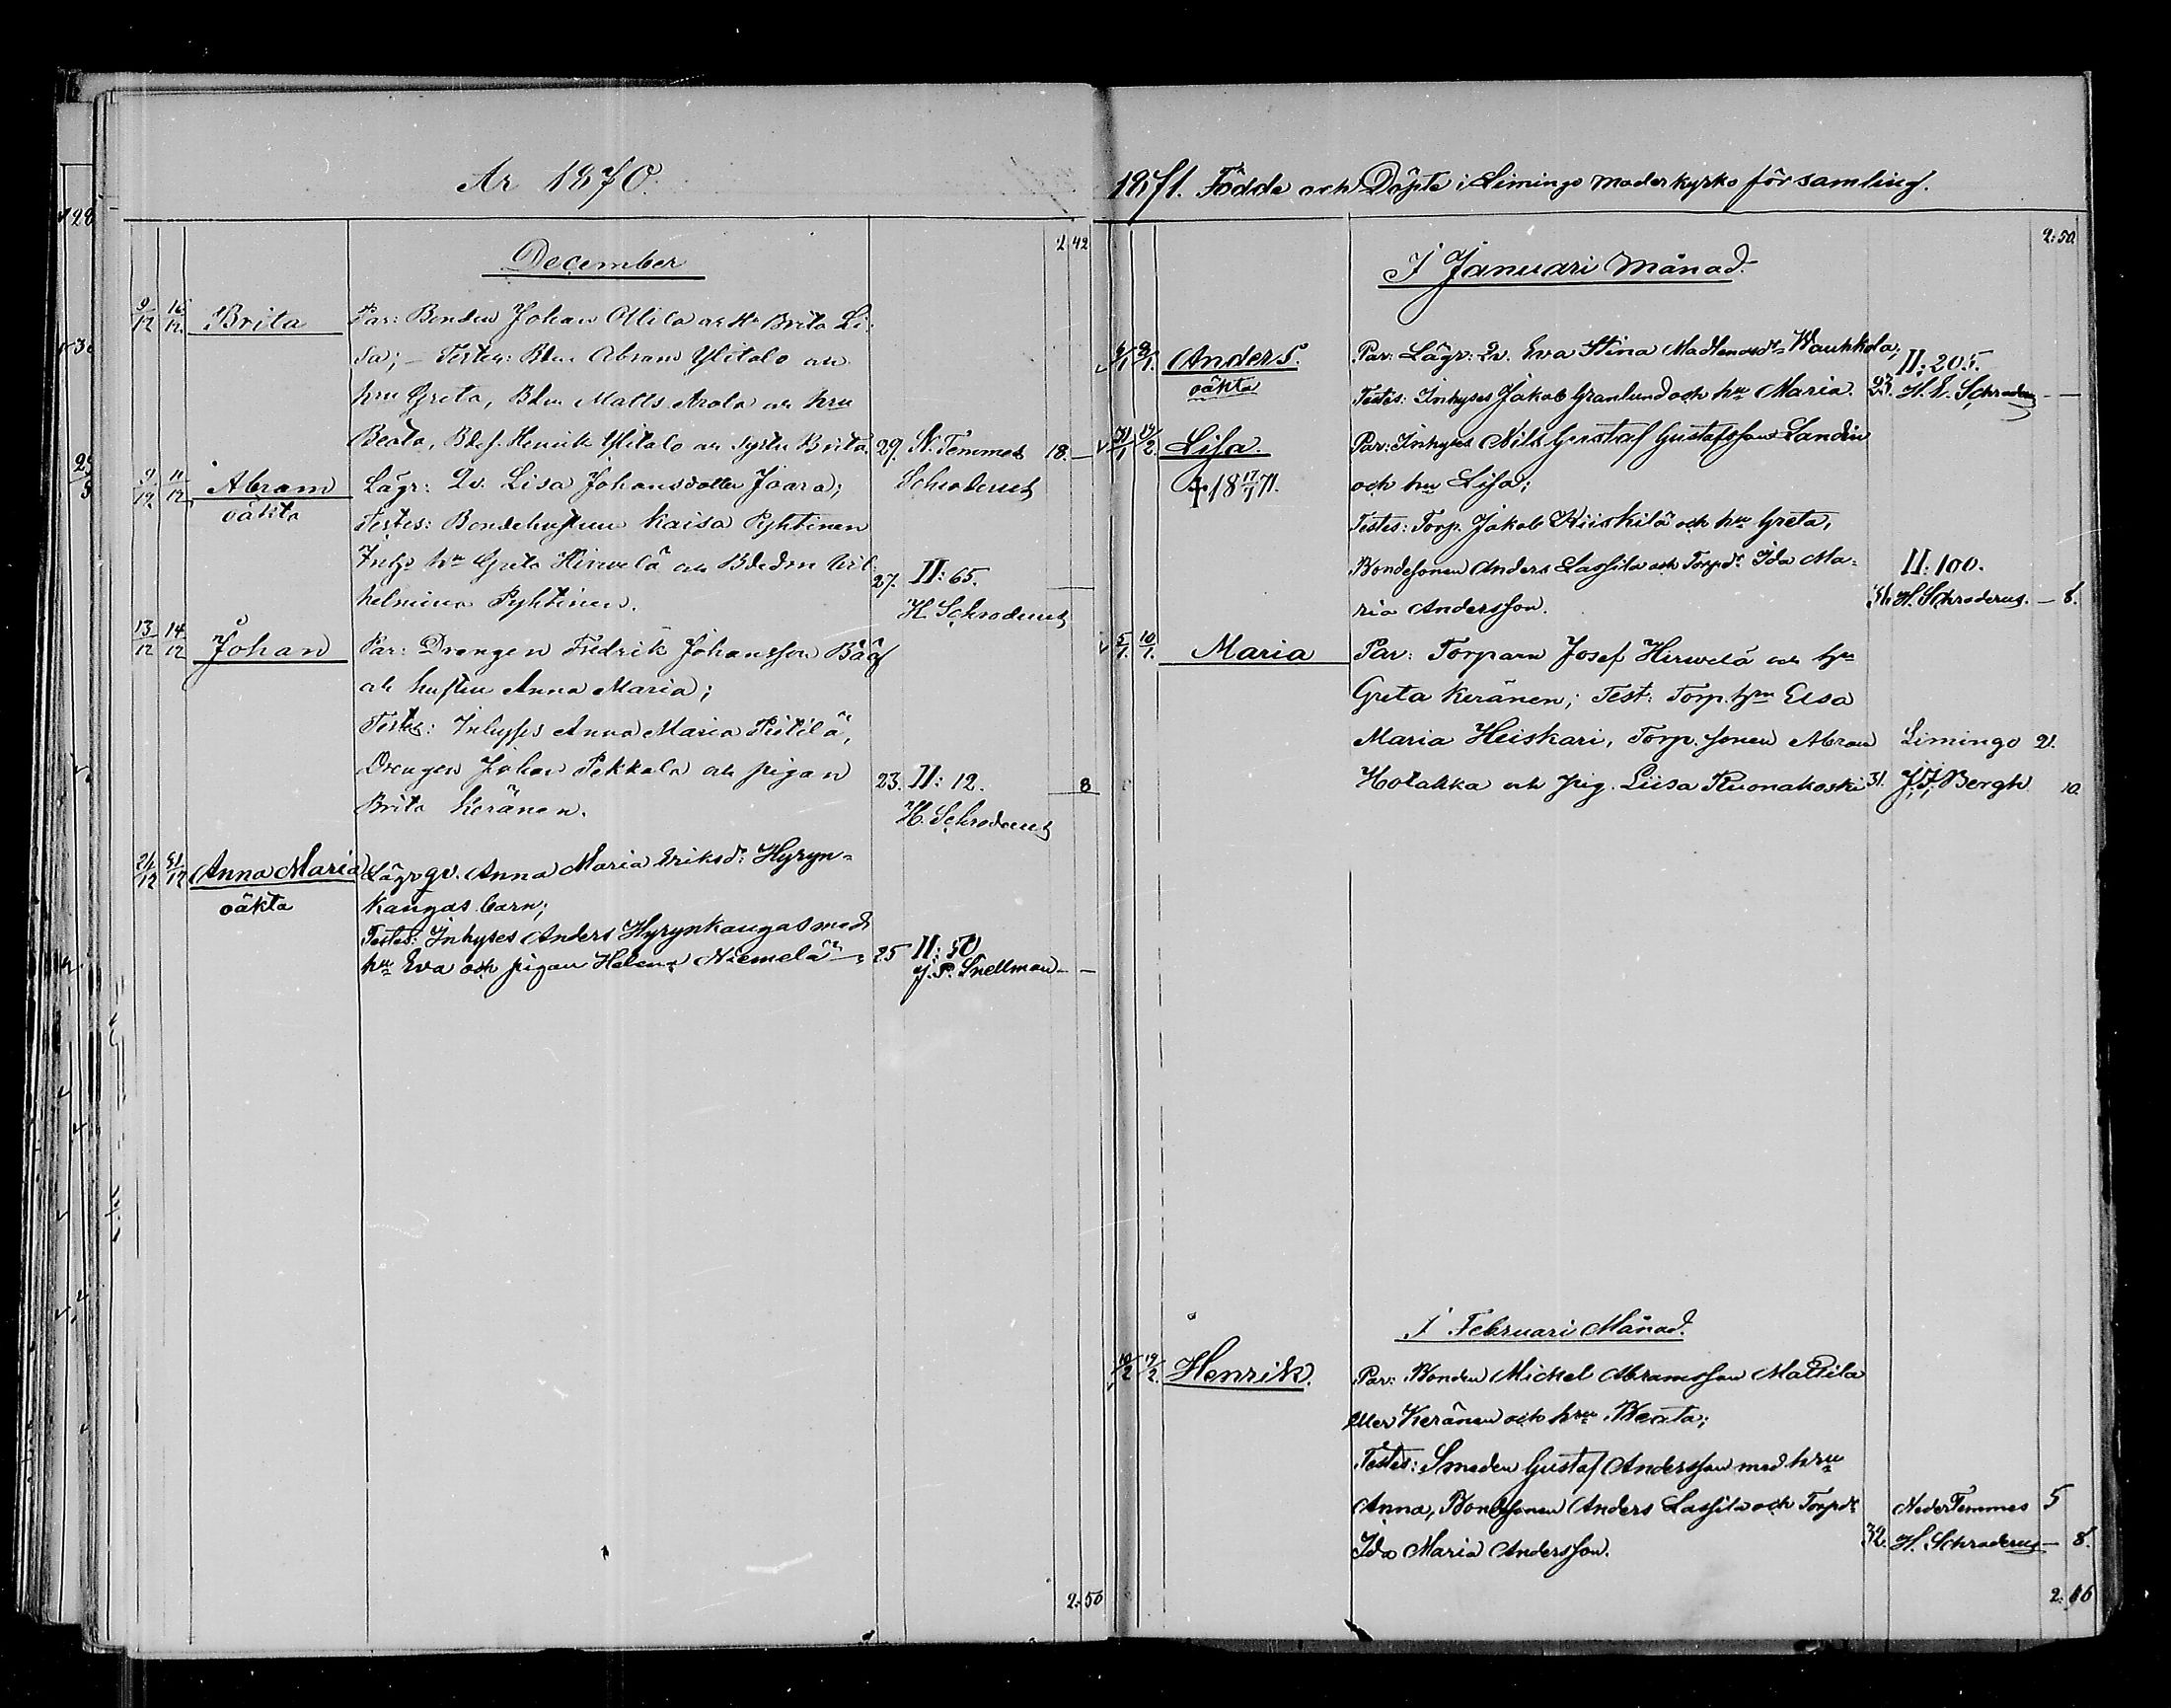 Ar 1870.
December
2 42
9/12 16/12 Brita Par: Bonden Johan Ollila och Hu Brita Li-
sa; – Testes: Bden Abram Ylitalo och
hru Greta, Bden Matts Arola och hru
Beata, Bdes. Henrik Ylitalo och syster Brita. 29. N. Temmes 18. –
Schroderus
9/12 11/12 Abram Lägr: Qv. Lisa Johansdotter Jaara;
oäkta
Testes: Bondehustrun Kaisa Pyhtinen
Inhys hu Greta Hirwelä och Bdedm Wil-
helmina Pyhtinen. 27. II: 65.
H. Schroderus
13/12 14/12 Johan Par: Drengen Fredrik Johansson Bååf
och hustru Anna Maria;
Testes: Inhyses Anna Maria Tistilä,
Drengen Johan Pekkala och pigan 23. II: 12. 8
Brita Keränen.
H. Schroderus
Anna Maria Lägr qv. Anna Maria Eriksdr Hyryn-
oäkta kangas barn;
Testes: Inhyses Anders Hyrynkangas med
hu Eva och pigan Helena Niemelä – 25 II: 50
J. P. Snellman – –
2: 50
1871. Födde och Döpte i Limingo moderkyrko församling.
2: 50
I Januari månad.
Anders. Par: Lägr: Qv. Eva Stina Madlenasdr Wauhkola, II: 205.
oäkta
Testes: Inhyses Jakob Granlund och hu Maria. 23. H. E. Schroderus – –
Lisa. Par: Inhyses Nils Gustaf Gustafsson Landin
† 18 17/7 71. och hru Lisa;
Testes: Torp. Jakob Kiiskilä och hru Greta,
Bondesonen Anders Lassila och Torpdr Ida Ma- II: 100.
ria Andersson. H. Schroderus. – 8.
5/1 10/1 Maria Par: Torparn Josef Hirwelä och hu
Greta Keränen; Test: Torp. hru Elsa
Maria Heiskari, Torp. sonen Abram Limingo 21.
Holakka och pig. Liisa Ruonakoski 31. J. F. Bergh 10.
I Februari Månad.
10/2 19/2 Henrik. Par: Bonden Michel Abramsson Mattila
eller Keränen och hru Beata;
Testes: Smeden Gustaf Andersson med hru
Anna, Bondesonen Anders Lassila och Torpdr NederTemmes 5
Ida Maria Andersson. 32. H. Schroderus – 8.